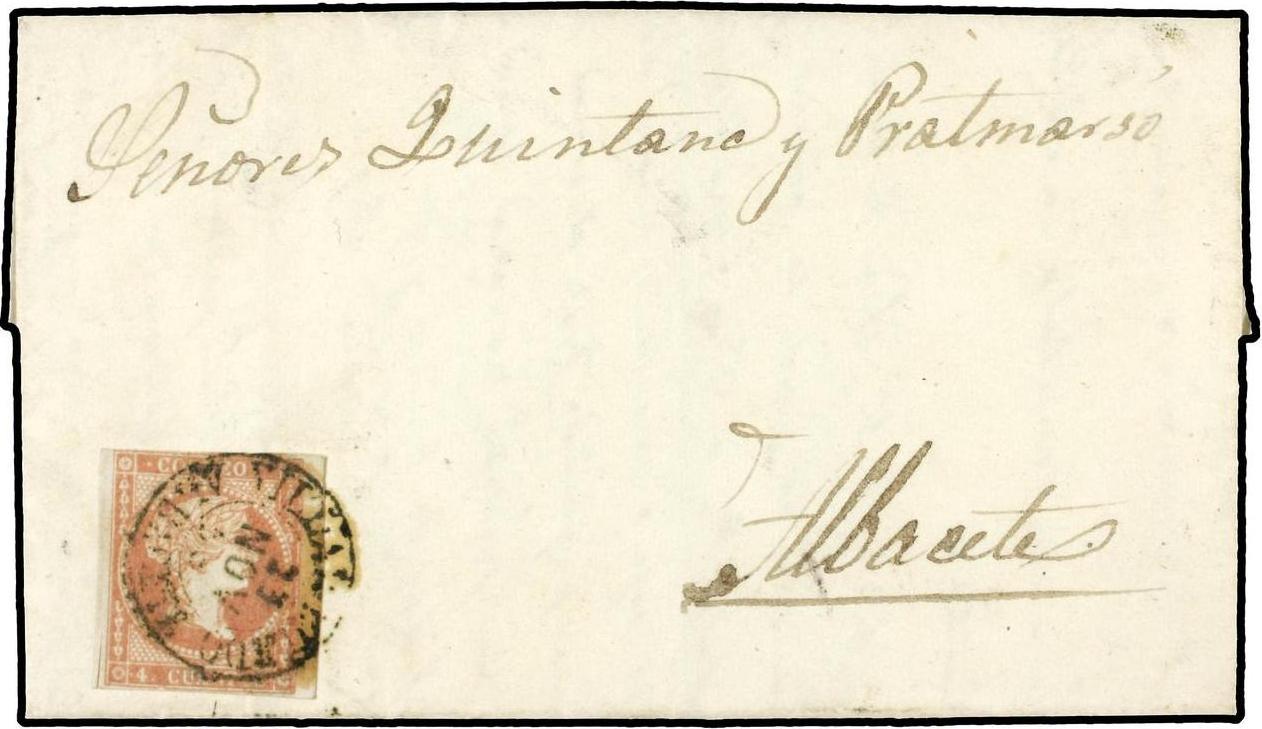 Señores Quintana y Pratmarsó
Albacete
CORREO
NOV
4. CU